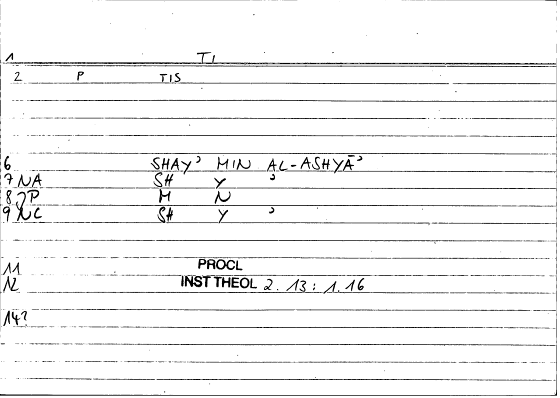 1 TI
2 P TIS
6 SHAY' MIN AL-ASHYĀ'
7 NA SH Y '
8 JP M N
9 NC SH Y '
11 PROCL
12 INST THEOL 2.13: 1.16
14?